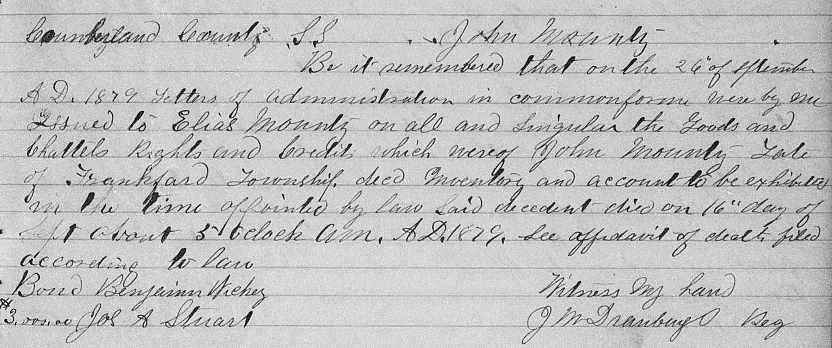 Cumberland County SS John Mountz
Be it remembered that on the 26" of September
A D. 1879 Letters of administration in common forme were by me
Issued to Elias Mountz on all and Singular the Goods and
Chattels Rights and Credits which were of John Mountz Late
of Frankfard Township decd Inventory and account to be exhibited
in the time appointed by law Said decedent died on 16" day of
Sept about 5 oclock AM. A.D. 1879. See affidavit of death filed
according to law
Bond Benjamin Witness My hand
$3,000.00 Jos A Stuart J M Reg